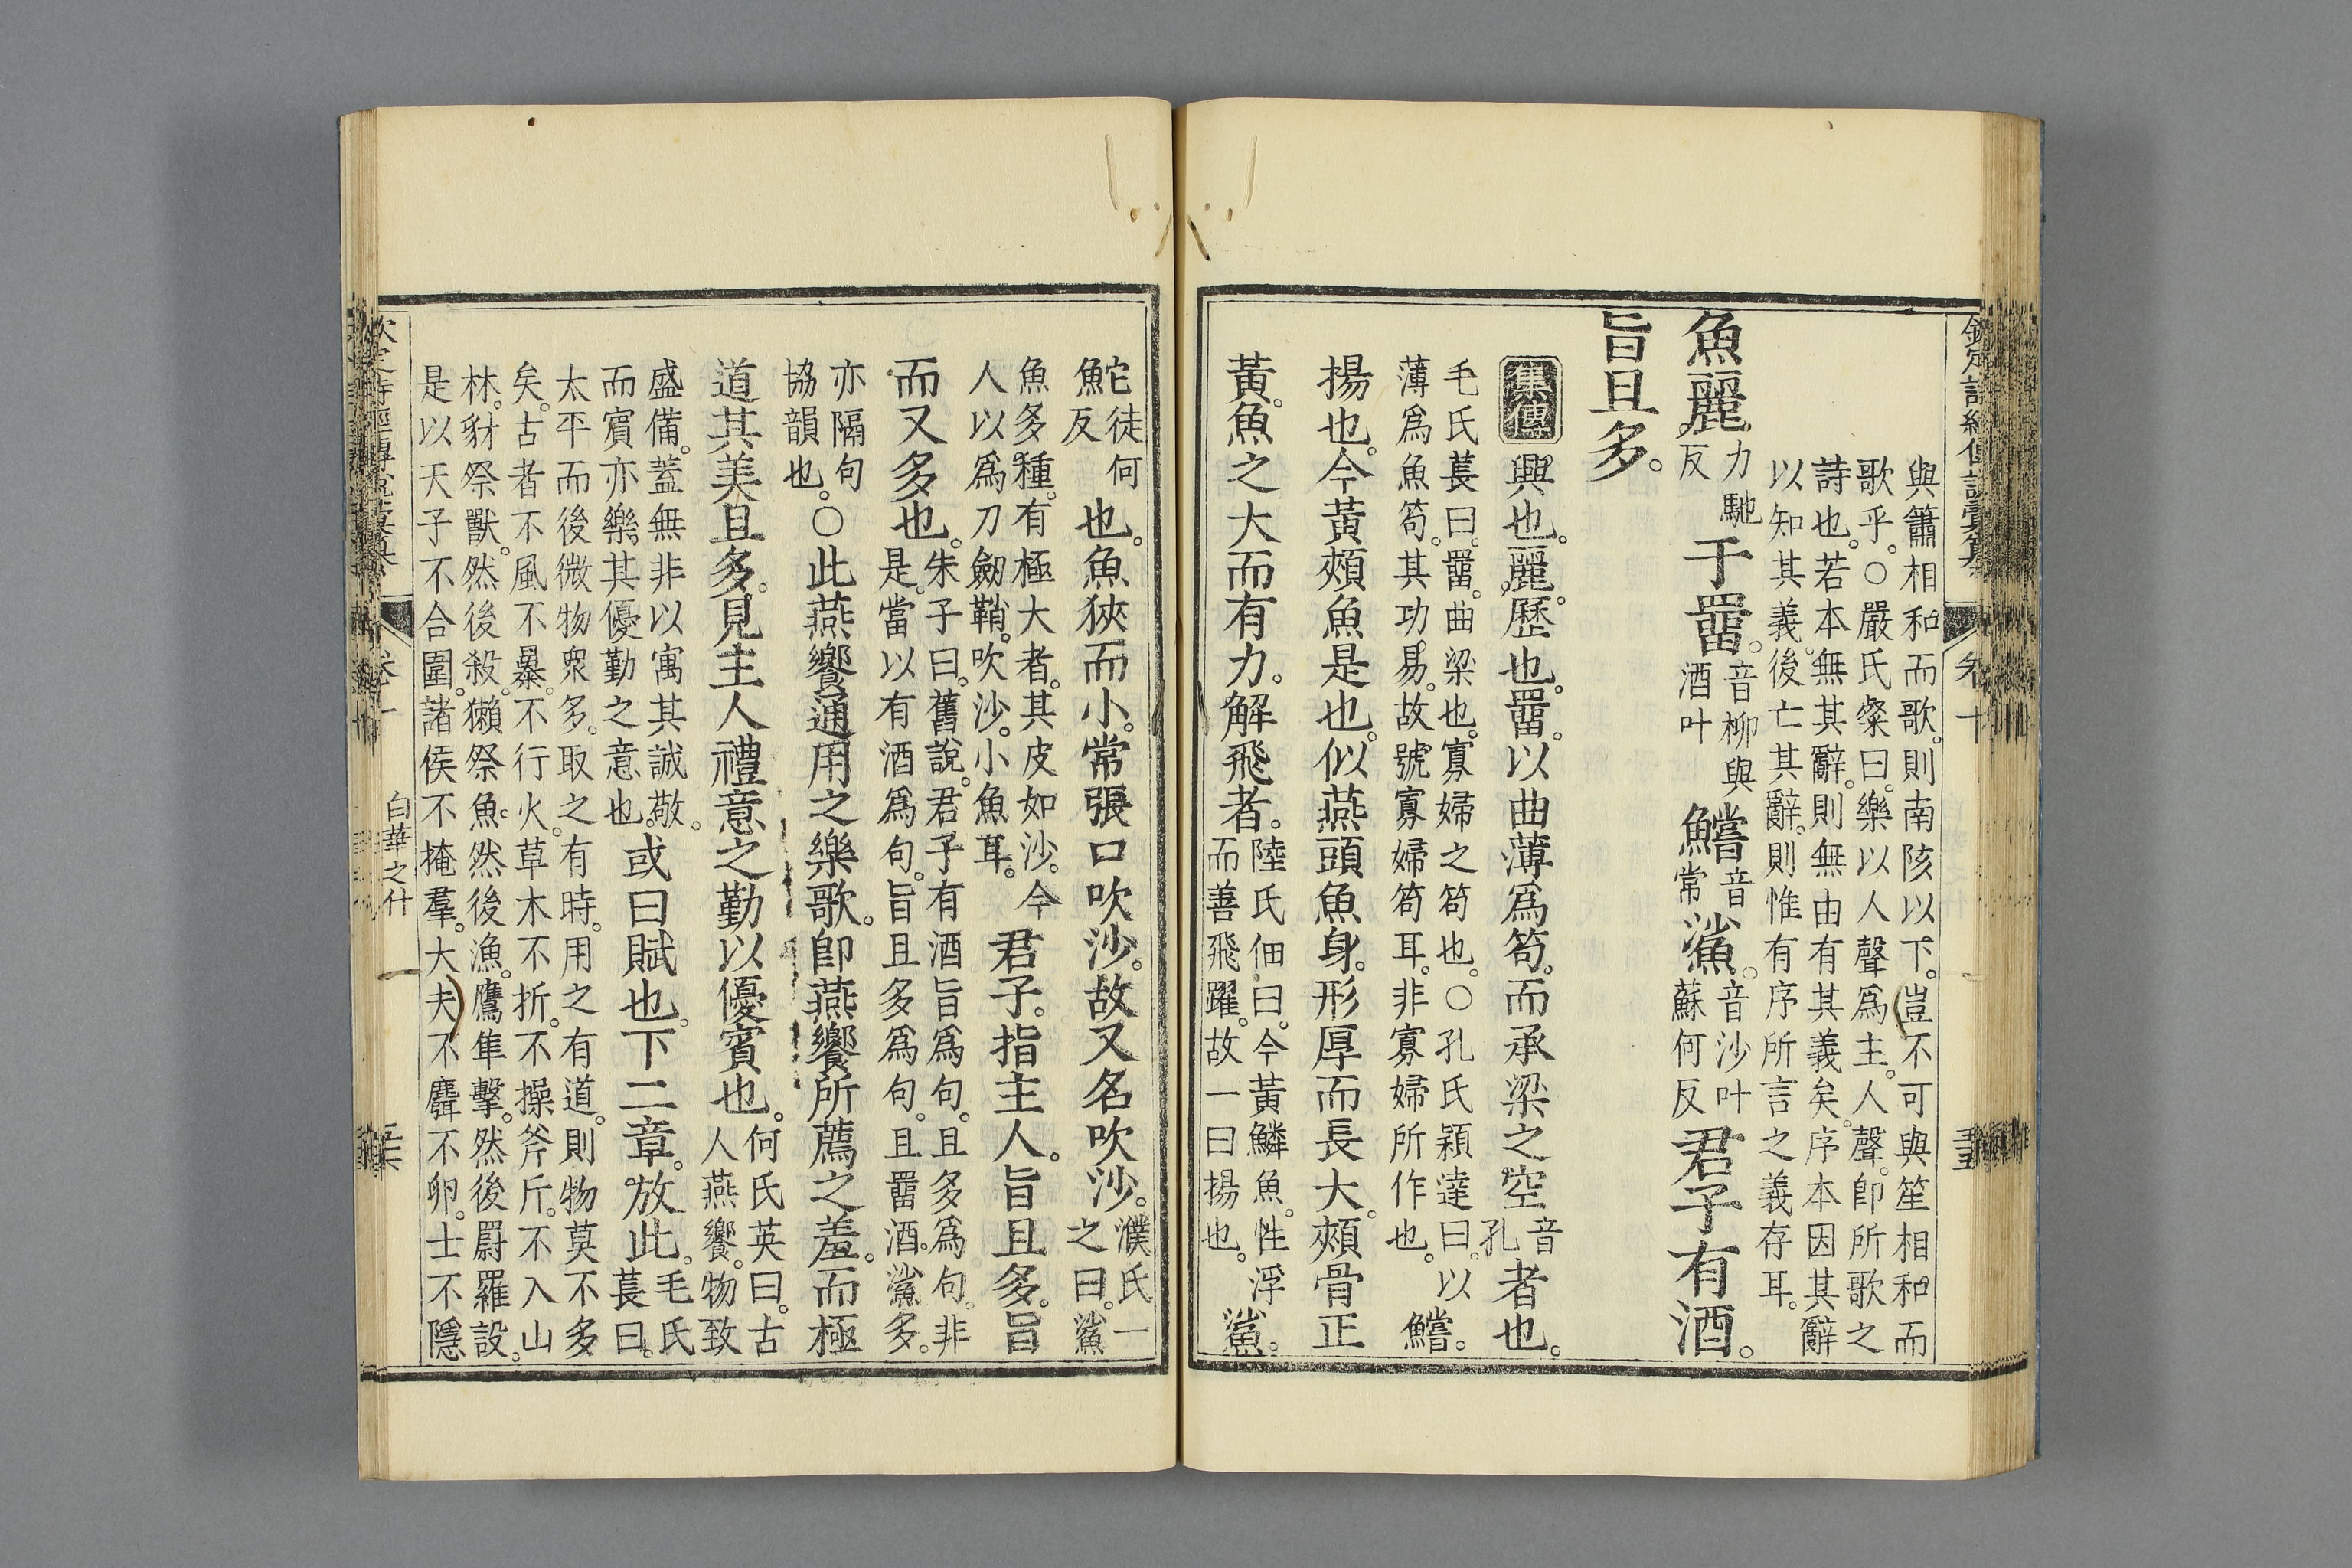 與籥相和而歌。則南陔以下。豈不可與笙相和而
歌乎。○嚴氏粲曰。樂以人聲爲主。人聲。卽所歌之
詩也。若本無其辭。則無由有其義矣。序本因其辭
以知其義。後亡其辭。則惟有序所言之義存耳。
魚麗力馳反于罶。音柳與酒叶鱨音常鯊。音沙叶蘇何反君子有酒。
旨且多。
集傳興也。麗。歷也。罶。以曲薄爲笱。而承梁之空音孔者也。
毛氏萇曰。罶。曲梁也。寡婦之笱也。○孔氏穎達曰。以
薄爲魚笱。其功易。故號寡婦笱耳。非寡婦所作也。
鱨。
揚也。今黃頰魚是也。似燕頭魚身。形厚而長大。頰骨正
黃。魚之大而有力。解飛者。陸氏佃曰。今黃鱗魚。性浮而善飛躍。故一曰揚也。鯊。
鮀徒何反也。魚狹而小。常張口吹沙。故又名吹沙。濮氏一之曰。鯊
魚多種。有極大者。其皮如沙。今人以爲刀劒鞘。吹沙。小魚耳。君子。指主人。旨且多。旨
而又多也。朱子曰。舊說。君子有酒旨爲句。且多爲句。非是。當以有酒爲句。旨且多爲句。且罶酒。鯊多。
亦隔句協韻也。○此燕饗通用之樂歌。卽燕饗所薦之羞。而極
道其美且多。見主人禮意之勤以優賓也。何氏英曰。古人燕饗。物致
盛備。蓋無非以寓其誠敬。而賓亦樂其優勤之意也。或曰賦也。下二章。放此。毛氏萇曰。
太平而後微物衆多。取之有時。用之有道。則物莫不多
矣。古者不風不暴。不行火。草木不折。不操斧斤。不入山
林。豺祭獸。然後殺。獺祭魚。然後漁。鷹隼擊。然後罻羅設。
是以天子不合圍。諸侯不掩羣。大夫不麛不卵。士不隱
白華之什